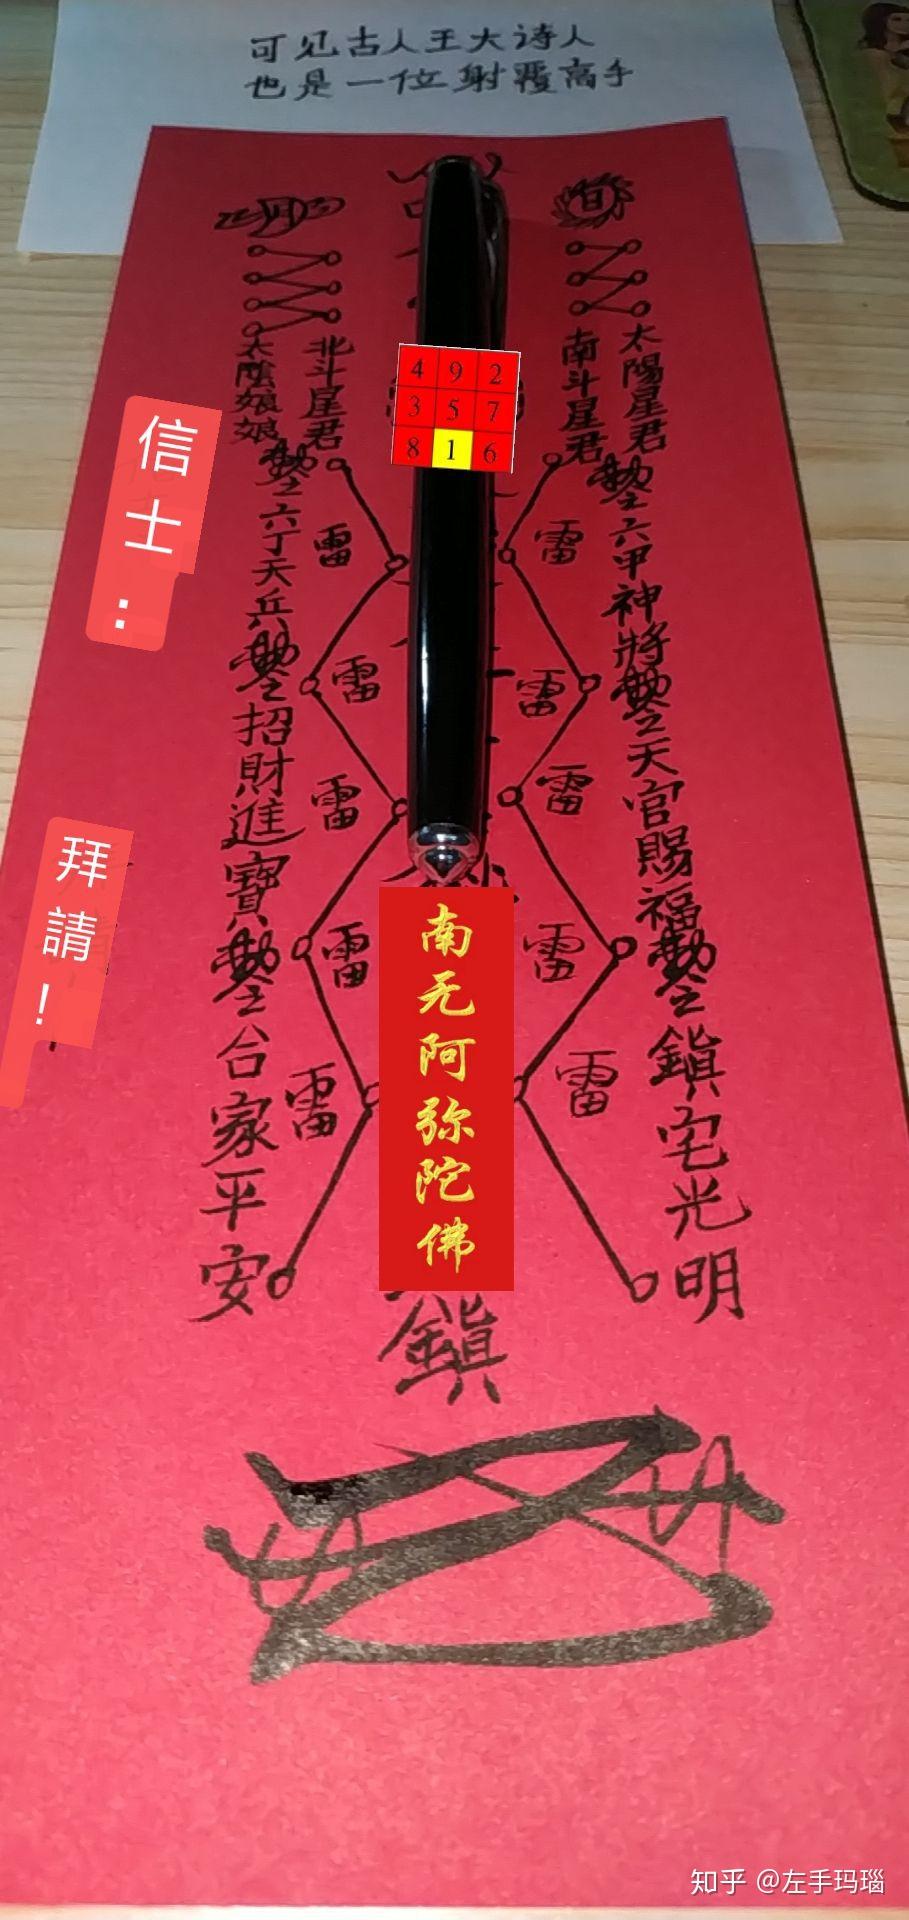 可见古人王大诗人
也是一位射覆高手
太陽星君
南斗星君
北斗星君
太陰娘娘
六甲神將
天官賜福
鎮宅光明
六丁天兵
招財進寶
合家平安
雷 雷
雷 雷
雷 雷
雷 雷
雷 雷
4 9 2
3 5 7
8 1 6
信士：
拜請！
南无阿弥陀佛
鎮
知乎 @左手玛瑙